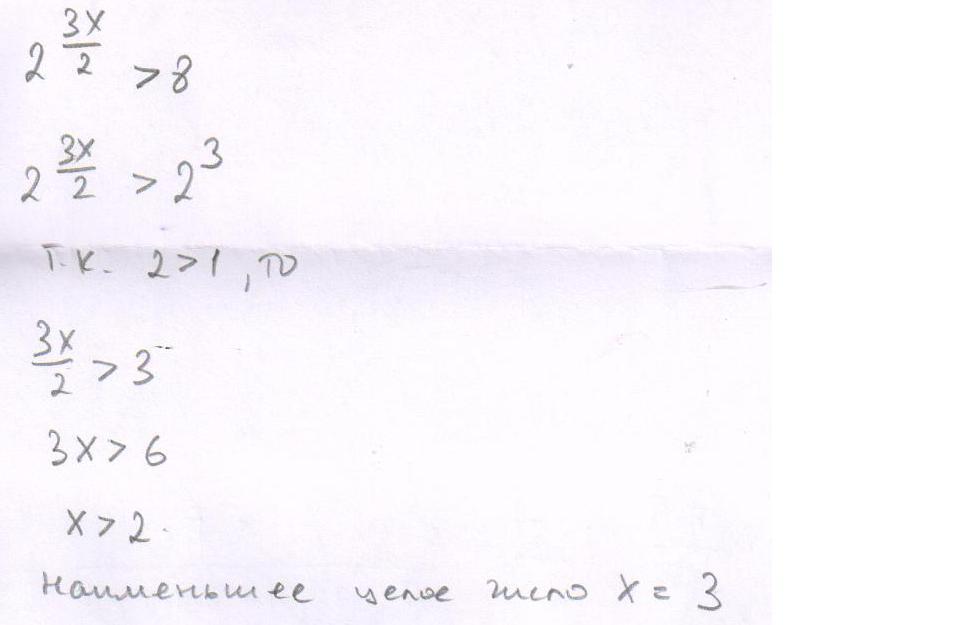 2^(3x/2) > 8
2^(3x/2) > 2^3
Т.к. 2>1, то
3x/2 > 3
3x > 6
x > 2
наименьшее целое число x = 3